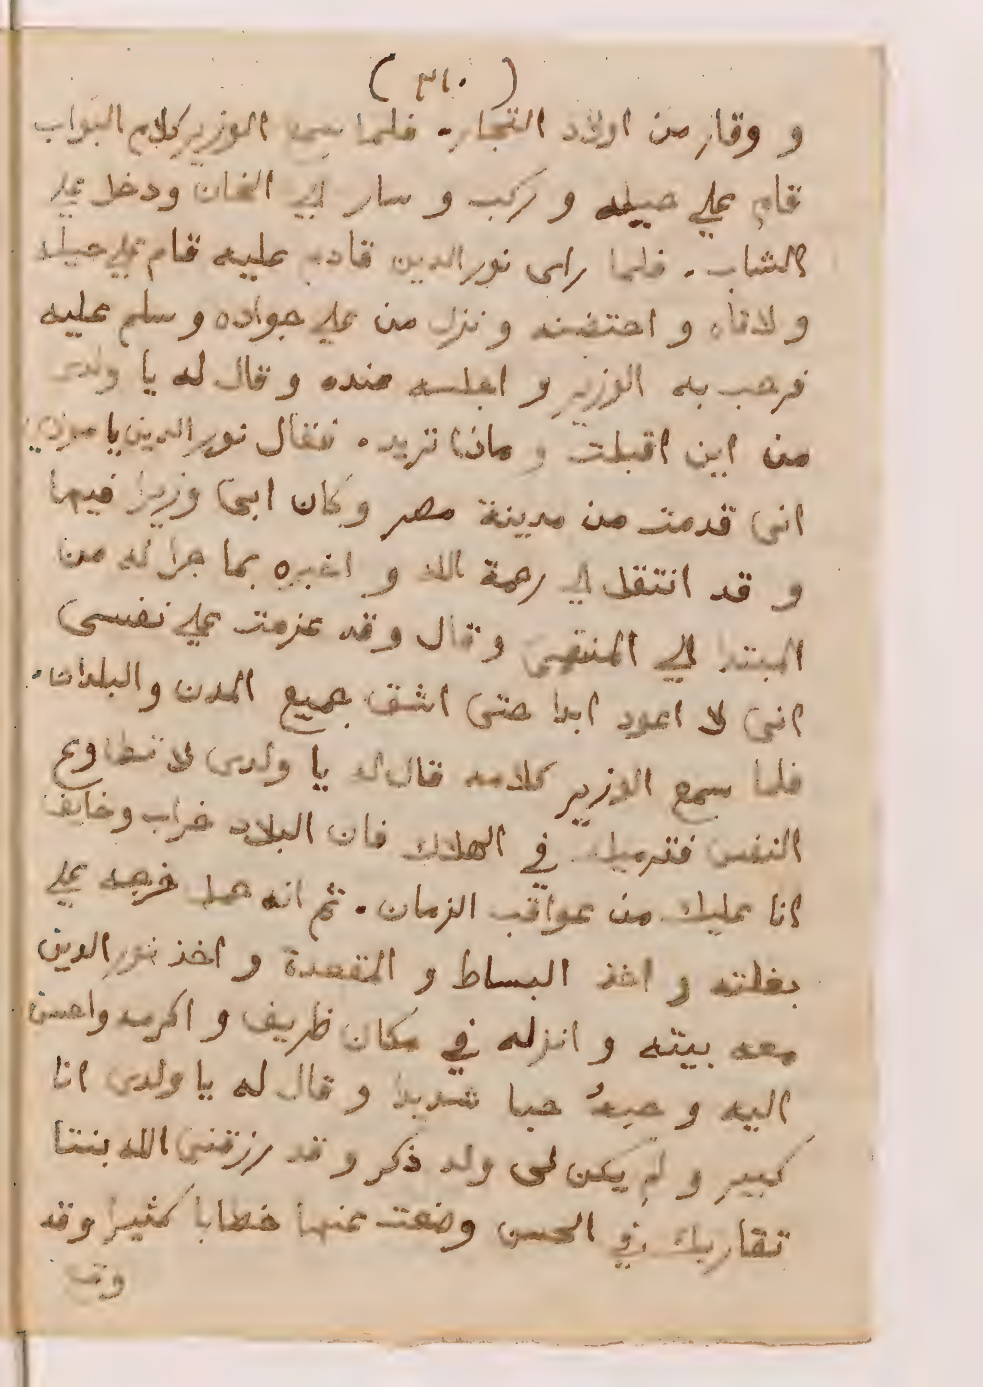 (٣١٠)
و وقار من اولاد التجار. فلما سمع الوزير كلام البواب
قام علي حيله و ركب و سار الي الخان ودخل علي
الشاب. فلما راى نور الدين قادم عليه قام علي حيله
و لاقاه و احتضنه و نزل من علي جواده و سلم عليه
فرحب به الوزير و اجلسه عنده و قال له يا ولدى
من اين اقبلت و ماذا تريد. فقال نور الدين يا مولاي
انى قدمت من مدينة مصر وكان ابى وزيرا فيها
و قد انتقل الي رحمة الله و اخبره بما جرا له من
المبتدا الي المنتهى و قال و قد عزمت علي نفسى
انى لا اعود ابدا حتى اشق جميع المدن والبلدان.
فلما سمع الوزير كلامه قال له يا ولدى لا تطاوع
النفس فترميك في الهلاك فان البلاد خراب وخايف
انا عليك من عواقب الزمان. ثم انه حمل خرجه علي
بغلته و اخذ البساط و المقعدة و اخذ نور الدين
معه بيته و انزله في مكان ظريف و اكرمه واحسن
اليه و حبهُ حبا شديدا و قال له يا ولدى انا
كبير و لم يكن لى ولد ذكر و قد رزقنى الله بنتا
تقاربك في الحسن وضعت عنها خطابا كثيرا وقد
وقد